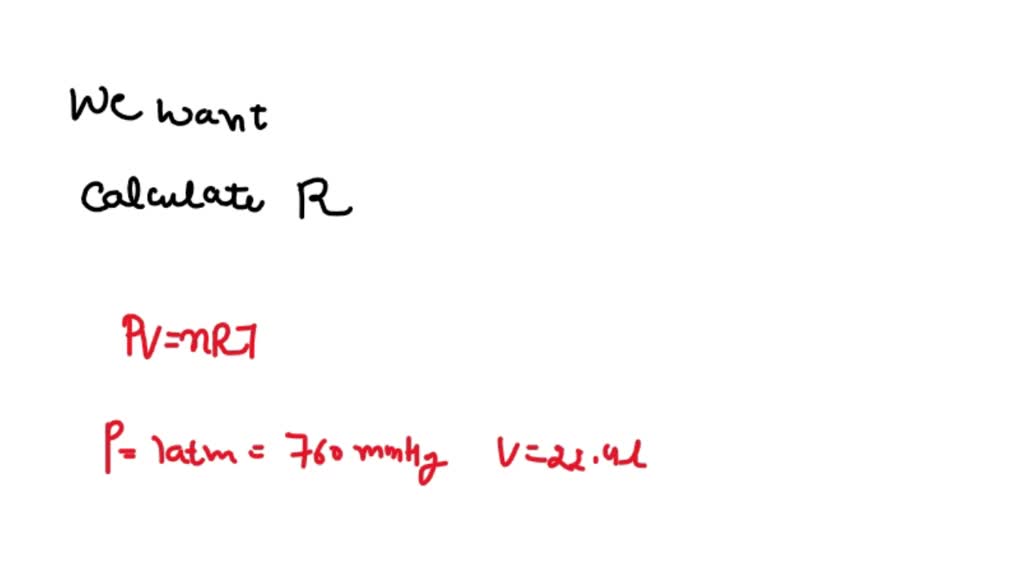 We want
Calculate R
PV=nRT
P= 1atm = 760 mmHg V=22.4l